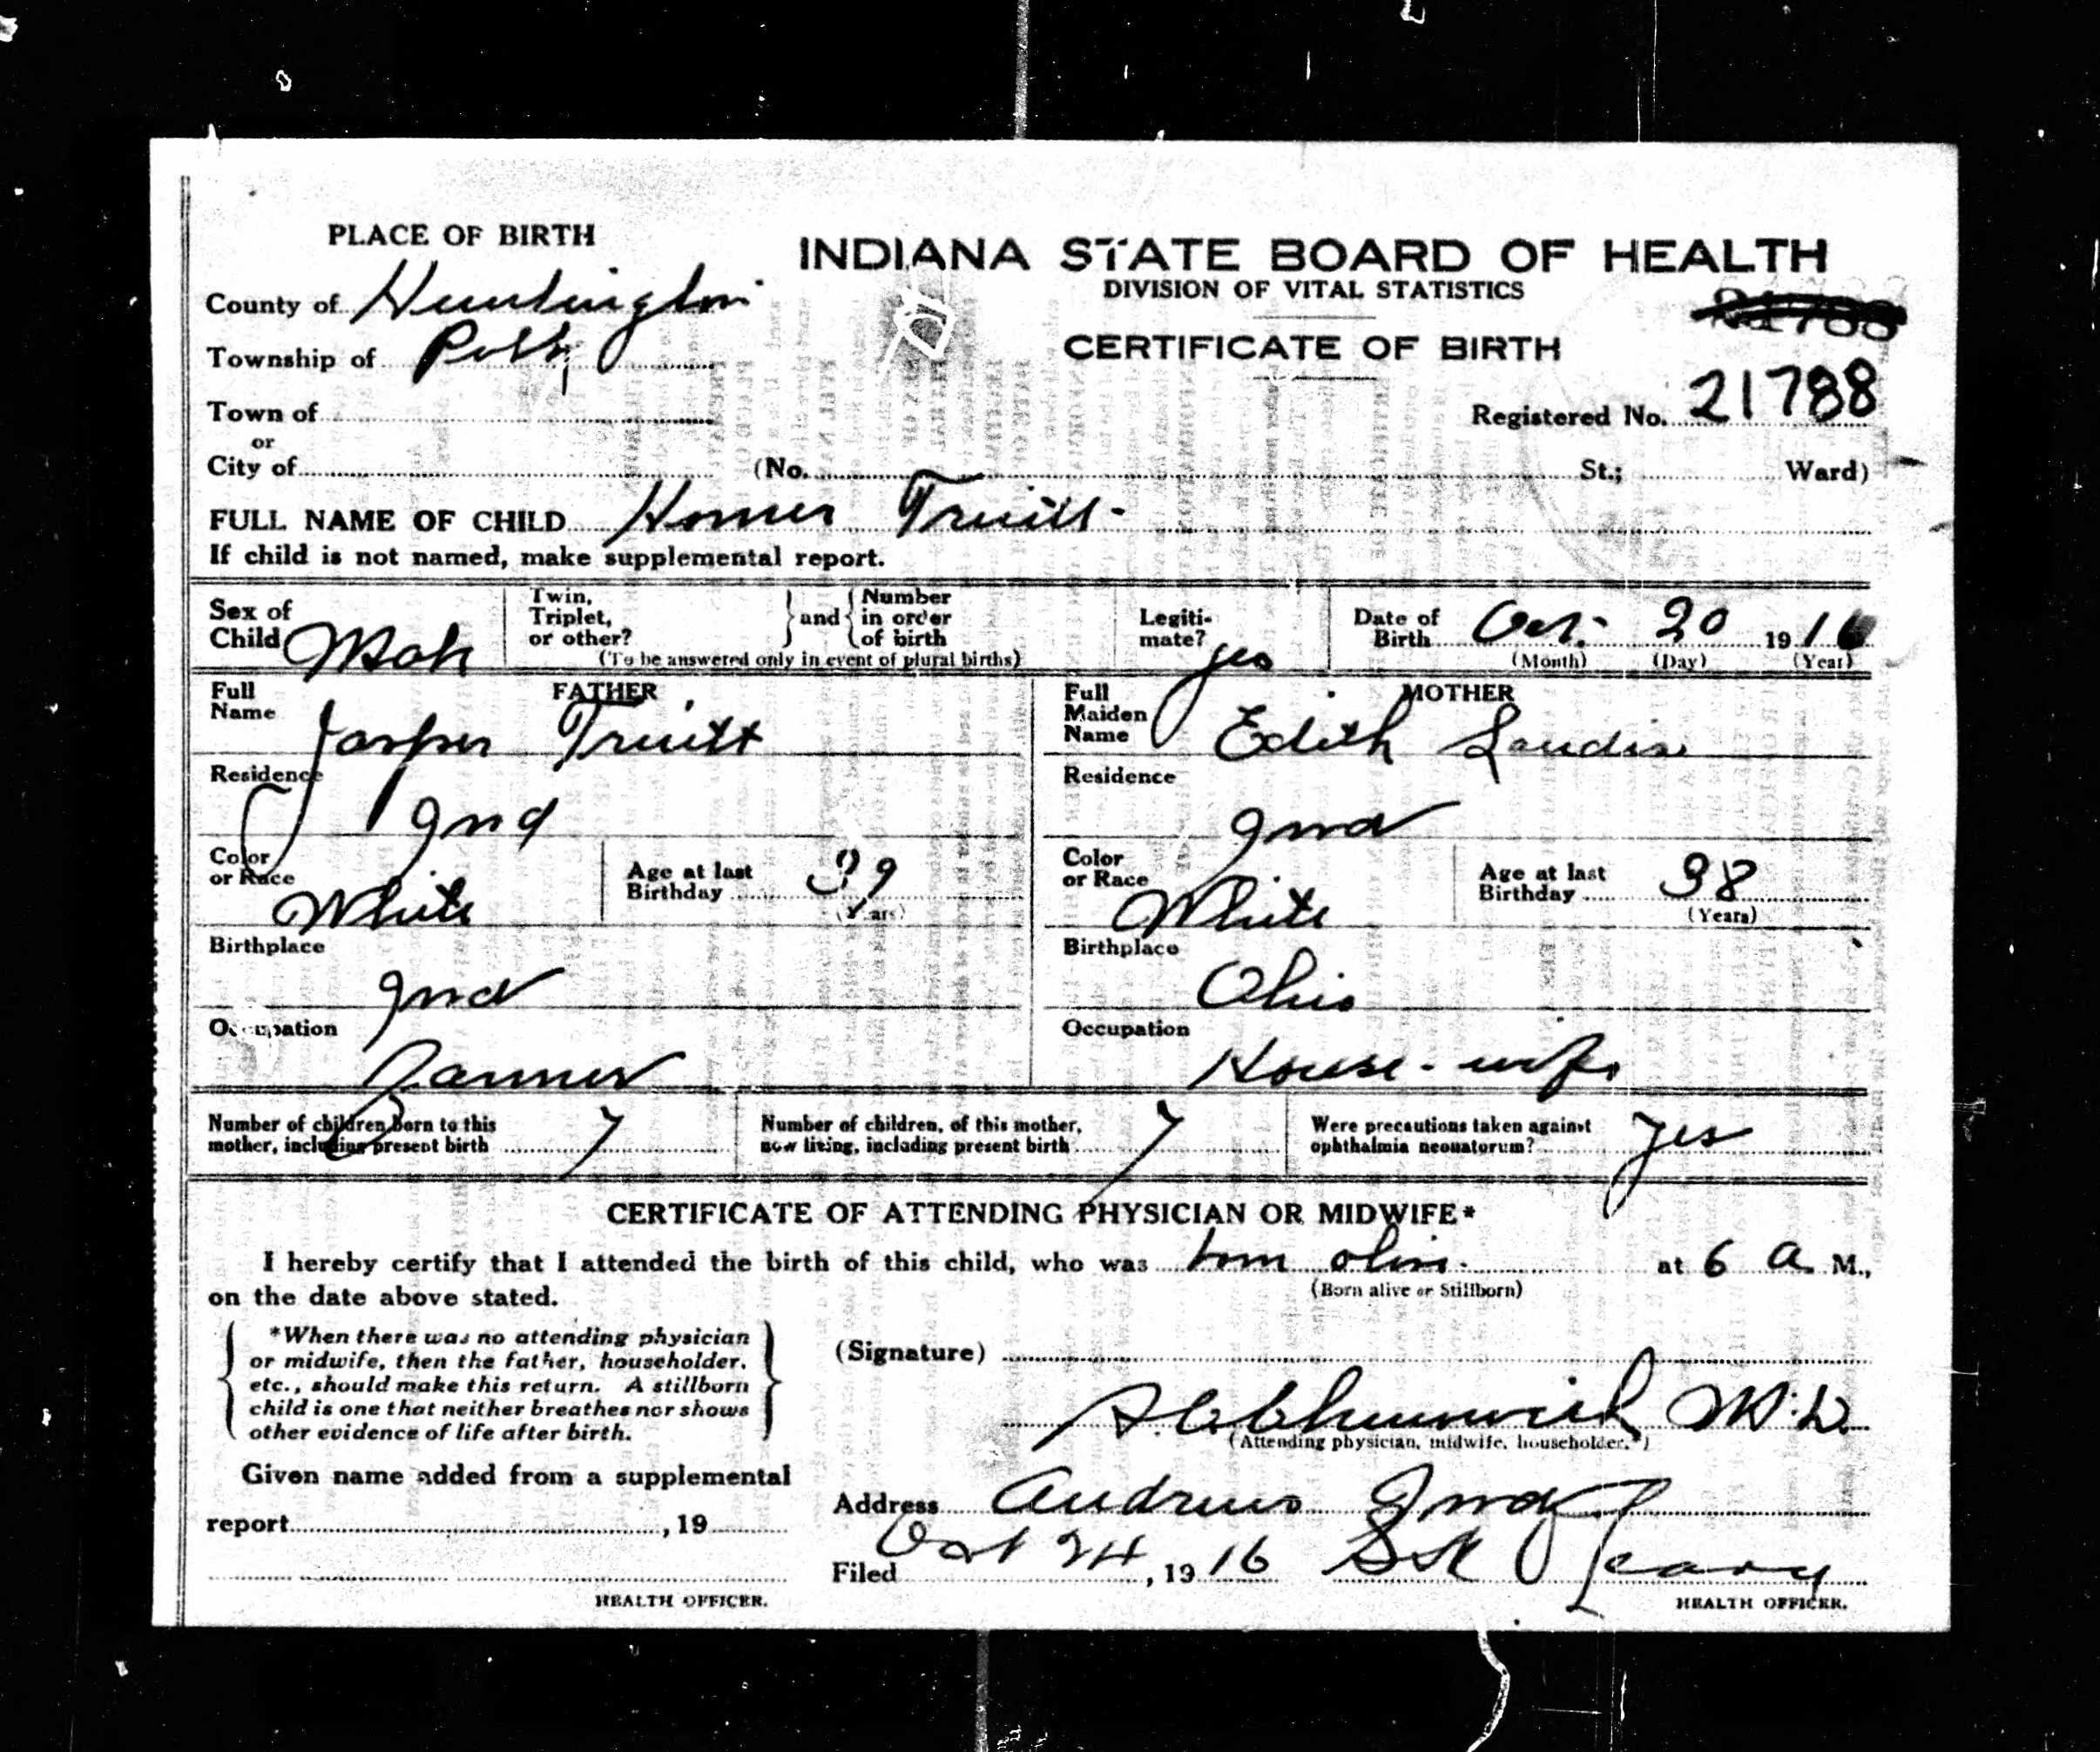 PLACE OF BIRTH
INDIANA STATE BOARD OF HEALTH
DIVISION OF VITAL STATISTICS
CERTIFICATE OF BIRTH
County of Huntington
Township of Polk
Town of
or
City of (No. St.; Ward)
Registered No. 21788
FULL NAME OF CHILD Homer Truitt
If child is not named, make supplemental report.
Sex of Child Male
Twin, Triplet, or other? } and { Number in order of birth
(To be answered only in event of plural births)
Legiti-mate? yes
Date of Birth Oct. 20 1916
(Month) (Day) (Year)
FATHER
Full Name Jasper Truitt
Residence Ind
Color or Race White
Age at last Birthday 39
(Years)
Birthplace Ind
Occupation Farmer
MOTHER
Full Maiden Name Edith Landis
Residence Ind
Color or Race White
Age at last Birthday 38
(Years)
Birthplace Ohio
Occupation House-wife
Number of children born to this mother, including present birth 7
Number of children, of this mother, now living, including present birth 7
Were precautions taken against ophthalmia neonatorum? Yes
CERTIFICATE OF ATTENDING PHYSICIAN OR MIDWIFE*
I hereby certify that I attended the birth of this child, who was born alive at 6 A. M.,
(Born alive or Stillborn)
on the date above stated.
*When there was no attending physician
or midwife, then the father, householder,
etc., should make this return. A stillborn
child is one that neither breathes nor shows
other evidence of life after birth.
(Signature)
M.D.
(Attending physician, midwife, householder.*)
Given name added from a supplemental
report , 19
HEALTH OFFICER.
Address Andrews Ind
Filed Oct 24, 1916
HEALTH OFFICER.